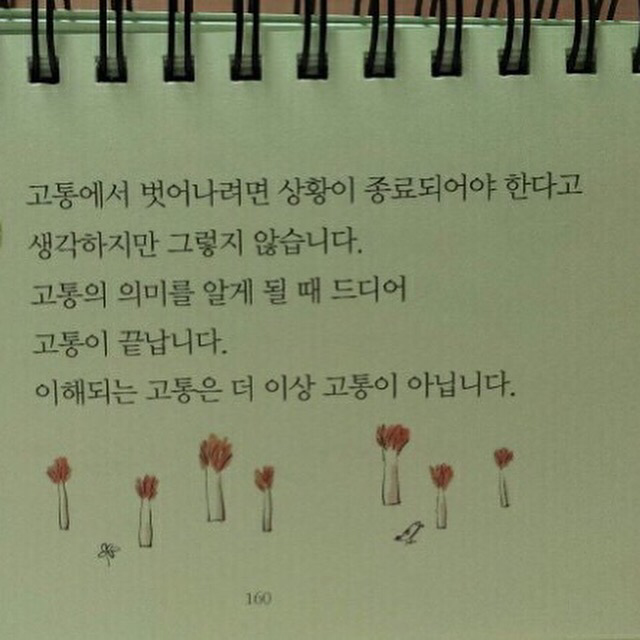 고통에서 벗어나려면 상황이 종료되어야 한다고
생각하지만 그렇지 않습니다.
고통의 의미를 알게 될 때 드디어
고통이 끝납니다.
이해되는 고통은 더 이상 고통이 아닙니다.
160